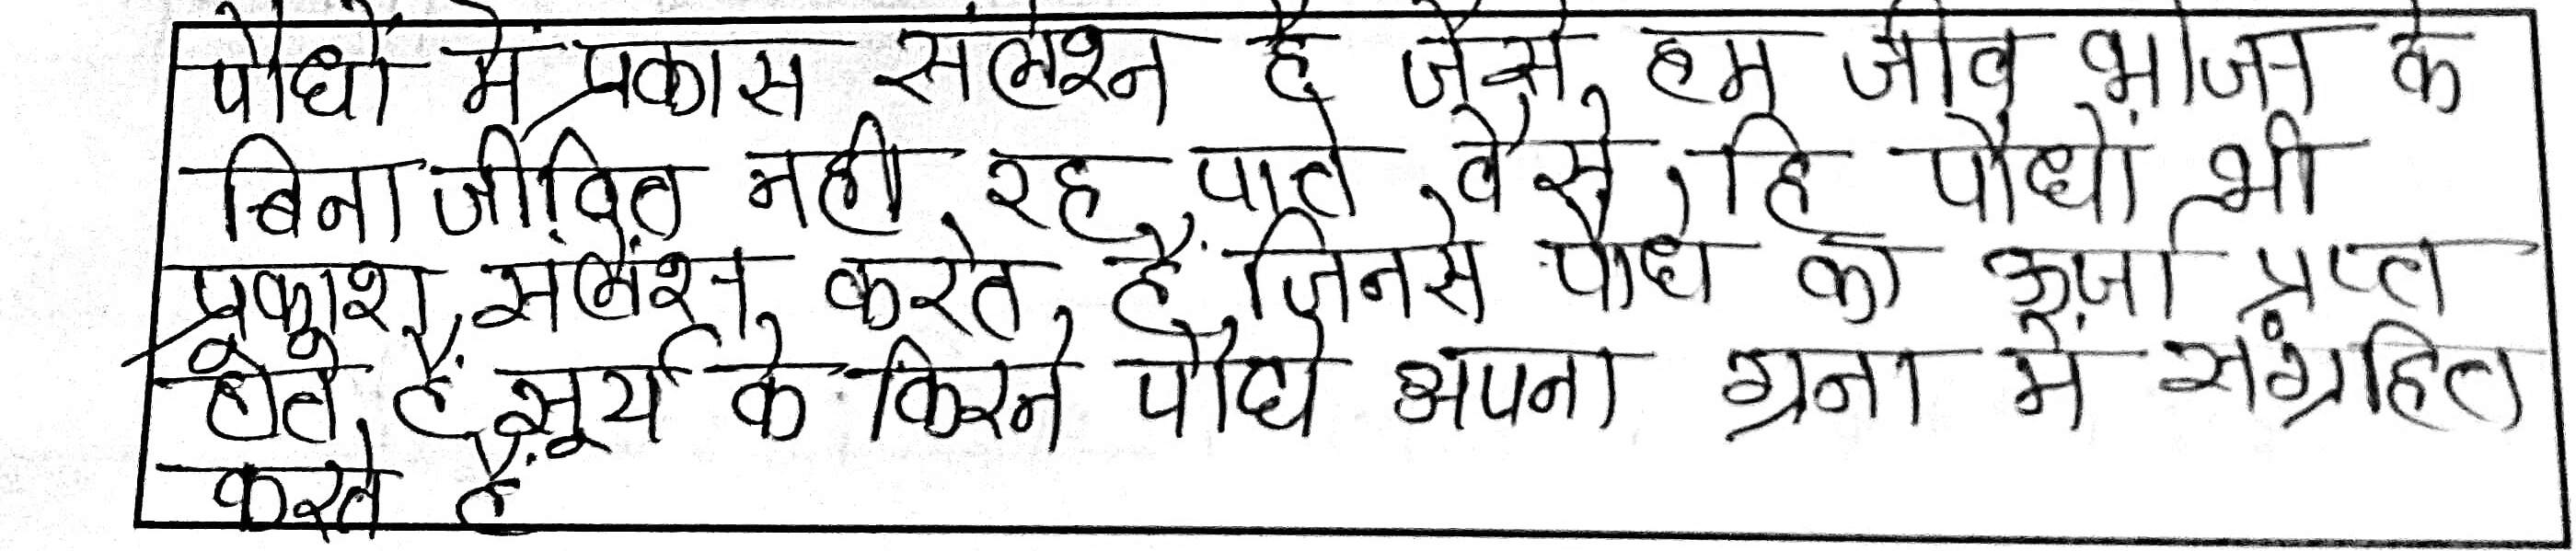 पौधों में प्रकास संलेशन है जैसे हम जीव भोजन के
बिना जीवित नही रह पाते वैसे हि पौधों भी
प्रकाश संलेंशन करते हैं जिनसे पौधे को ऊर्जा प्रप्त
होते हैं सूर्य के किरने पौधे अपना ग्रना में संग्रहित
करते हैं